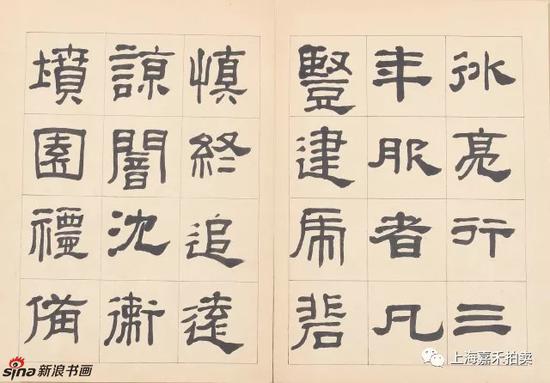 亮行三
年服者凡
豎建虎
慎終追遠
諒闇沈衛
墳園禮備
sina新浪书画
上海嘉禾拍卖